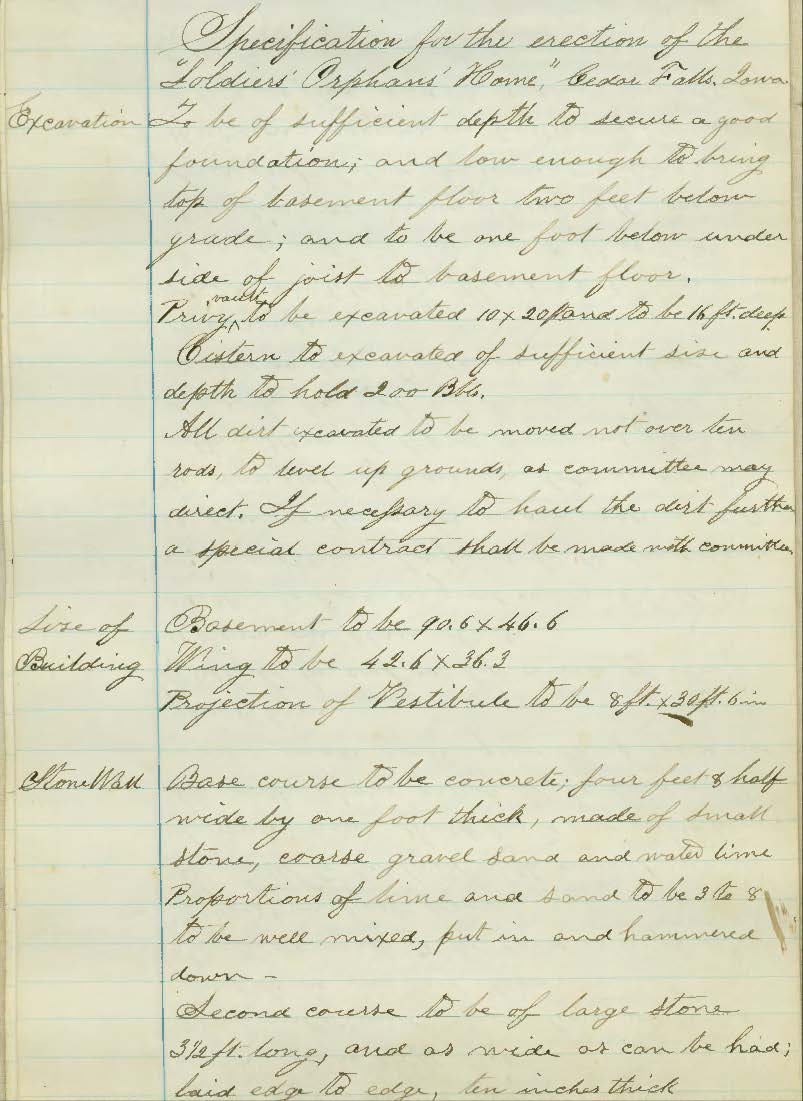 Specification for the erection of the
"Soldiers' Orphans' Home," Cedar Falls, Iowa
Excavation To be of sufficient depth to secure a good
foundation; and low enough to bring
top of basement floor two feet below
grade; and to be one foot below under
side of joist to basement floor.
Privy vault to be excavated 10 x 20ft and to be 16 ft. deep
Cistern to excavated of sufficient size and
depth to hold 200 Bbls.
All dirt excavated to be moved not over ten
rods, to level up grounds, as committee may
direct. If necessary to haul the dirt further
a special contract shall be made with committee.
Size of Basement to be 90.6 x 46.6
Building Wing to be 42.6 x 36.3
Projection of Vestibule to be 8 ft. x 30 ft. 6 in
Stone Wall Base course to be concrete; four feet & half
wide by one foot thick, made of small
stone, coarse gravel sand and water lime
Proportions of lime and sand to be 3 to 8
to be well mixed, put in and hammered
down -
Second course to be of large stone
3½ ft. long, and as wide as can be had;
laid edge to edge, ten inches thick